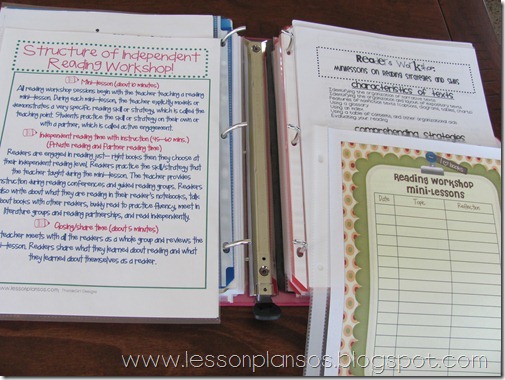 Structure of Independent
Reading Workshop!
Mini-lesson (about 10 minutes)
All reading workshop sessions begin with the teacher teaching a reading
mini-lesson. During each mini-lesson, the teacher explicitly models or
demonstrates a very specific reading skill or strategy, which is called the
teaching point. Students practice the skill or strategy on their own or
with a partner, which is called active engagement.
Independent reading time with instruction (45-60 mins.)
(Private reading and Partner reading time)
Readers are engaged in reading just-right books then they choose at
their independent reading level. Readers practice the skill/strategy that
the teacher taught during the mini-lesson. The teacher provides
instruction during reading conferences and guided reading groups. Readers
also write about what they are reading in their reader's notebooks, talk
about books with other readers, buddy read to practice fluency, meet in
literature groups and reading partnerships, and read independently.
Closing/share time (about 5 minutes)
teacher meets with all the readers as a whole group and reviews the
-lesson. Readers share what they learned about reading and what
they learned about themselves as a reader.
Readers Workshop
Minilessons on Reading Strategies and Skills
characteristics of texts
Using a glossary
Evaluating
comprehending strategies
Reading Workshop
mini-lessons
Date
Topic
Reflection
www.lessonplansos.blogspot.com